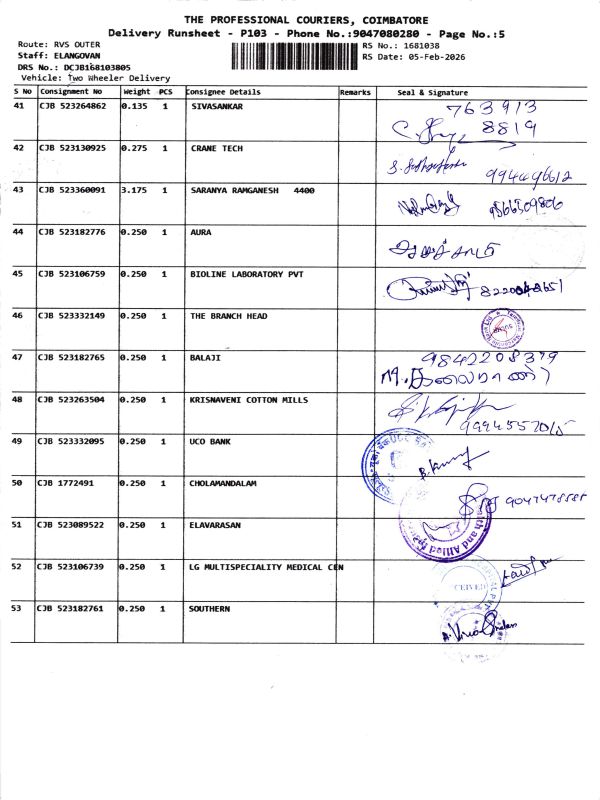 THE PROFESSIONAL COURIERS, COIMBATORE
Delivery Runsheet - P103 - Phone No.:9047080280 - Page No.:5
Route: RVS OUTER
RS No.: 1681038
Staff: ELANGOVAN
RS Date: 05-Feb-2026
DRS No.: DCJB168103805
Vehicle: Two Wheeler Delivery
S No Consignment No Weight PCS Consignee Details Remarks Seal & Signature
41 CJB 523264862 0.135 1 SIVASANKAR 763913
8819
42 CJB 523130925 0.275 1 CRANE TECH
9944496612
43 CJB 523360091 3.175 1 SARANYA RAMGANESH 4400
9566509806
44 CJB 523182776 0.250 1 AURA
45 CJB 523106759 0.250 1 BIOLINE LABORATORY PVT
46 CJB 523332149 0.250 1 THE BRANCH HEAD
47 CJB 523182765 0.250 1 BALAJI 9842208379
48 CJB 523263504 0.250 1 KRISNAVENI COTTON MILLS
9994557015
49 CJB 523332095 0.250 1 UCO BANK
50 CJB 1772491 0.250 1 CHOLAMANDALAM
51 CJB 523089522 0.250 1 ELAVARASAN
52 CJB 523106739 0.250 1 LG MULTISPECIALITY MEDICAL CEN
CEIVED
53 CJB 523182761 0.250 1 SOUTHERN